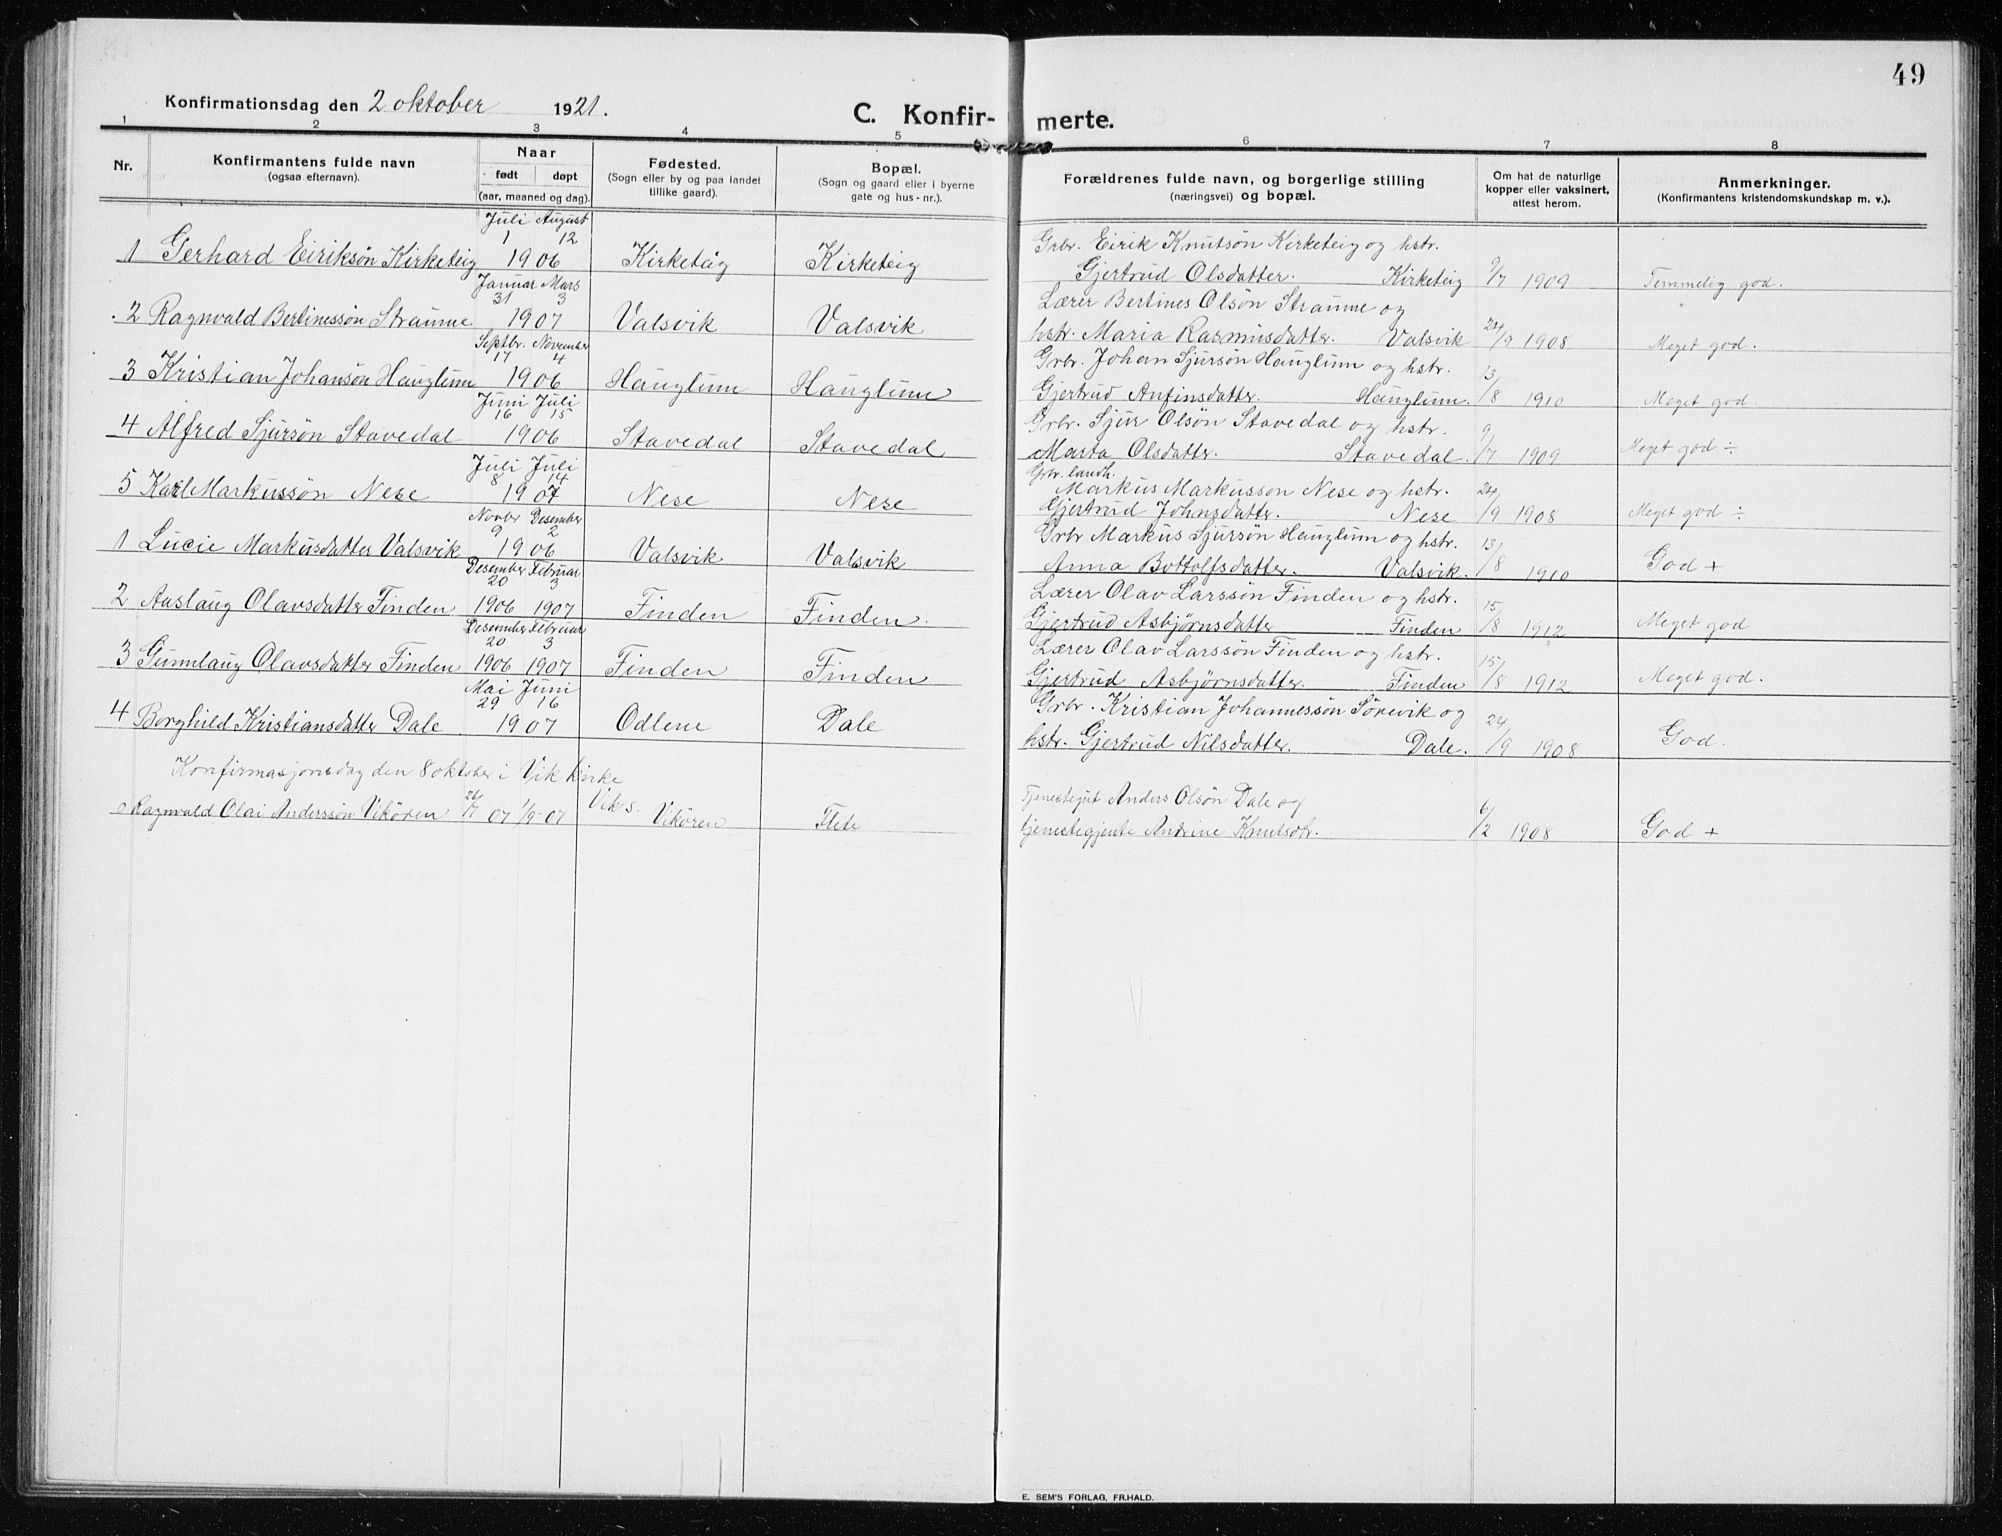 49
Konfirmationsdag den 2 oktober 1921.
C. Konfirmerte.
1 2 3 4 5 6 7 8
Nr.
Konfirmantens fulde navn
(ogsaa efternavn).
Naar
født døpt
(aar, maaned og dag).
Fødested.
(Sogn eller by og paa landet
tillike gaard).
Bopæl.
(Sogn og gaard eller i byerne
gate og hus-nr.).
Forældrenes fulde navn, og borgerlige stilling
(næringsvei) og bopæl.
Om hat de naturlige
kopper eller vaksinert,
attest herom.
Anmerkninger.
(Konfirmantens kristendomskundskap m. v.).
Juli August
1 12
Grbr. Eirik Knutsøn Kirketeig og hstr.
1 Gerhard Eiriksøn Kirketeig 1906 Kirketåg Kirketeig
Gjertrud Olsdatter. Kirketeig 9/7 1909 Temmelig god.
Januar Mars
31 3
Lærer Bertines Olsøn Straume og
2 Ragnvald Bertinessøn Straume 1907 Valsvik Valsvik
hstr. Maria Rasmusdatter. Valsvik 24/9 1908 Meget god.
Septbr. November
17 4
Grbr. Johan Sjursøn Hauglum og hstr.
3 Kristian Johansøn Hauglum 1906 Hauglum Hauglum
Gjertrud Anfinsdatter. Hauglum. 13/8 1910 Meget god.
Juni Juli
16 15
Grbr. Sjur Olsøn Stavedal og hstr.
4 Alfred Sjursøn Stavedal 1906 Stavedal Stavedal
Marta Olsdatter. Stavedal. 9/7 1909 Meget god ÷
Juli Juli
8 14
Grbr. landh.
Markus Markusson Nese og hstr.
5 Karl Markussøn Nese 1907 Nese Nese
Gjertrud Johnsdatter. Nese 24/9 1908 Meget god ÷
Novbr Desember
9 2
Grbr Markus Sjursøn Hauglum og hstr.
1 Lucie Markusdatter Valsvik 1906 Valsvik Valsvik
Anna Bottolfsdatter. Valsvik. 13/8 1910 God +
Desember Februar
20 3
Lærer Olav Larssøn Finden og hstr.
2 Aaslaug Olavsdatter Finden 1906 1907 Finden Finden.
Gjertrud Asbjørnsdatter Finden 15/8 1912 Meget god
Desember Februar
20 3
Lærer Olav Larssøn Finden og hstr.
3 Gunnlaug Olavsdatter Finden 1906 1907 Finden Finden
Gjertrud Asbjørnsdatter. Finden 15/8 1912 Meget god.
Mai Juni
29 16
Grbr. Kristian Johannessøn Sörevik og
4 Borghild Kristiansdatter Dale 1907 Odlene Dale
hstr. Gjertrud Nilsdatter. Dale. 24/9 1908 God.
Konfirmasjonsdag den 8 oktober i Vik kirke
Tjenestegut Anders Olsøn Dale og
Ragnvald Olai Anderssøn Vikören 07 1/9-07 Vik s. Vikören Flete
tjenestegjente Andrine Knutsdtr. 6/2 1908 God +
E. SEM'S FORLAG, FR.HALD.